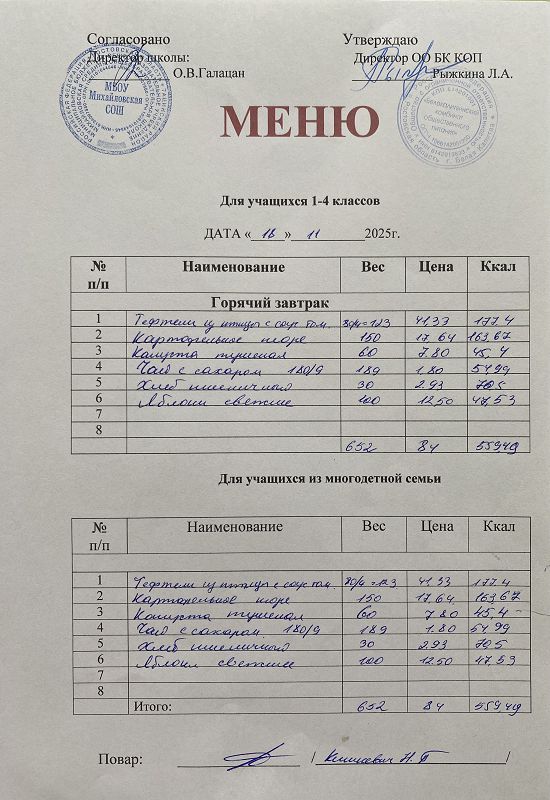 Согласовано Утверждаю
Директор школы: Директор ОО БК КОП
О.В.Галацан Рыжкина Л.А.
МБОУ
Михайловская
СОШ
«Белокалитвинский
комбинат
общественного
питания»
МЕНЮ
Для учащихся 1-4 классов
ДАТА « 18 » 11 2025г.
№ п/п Наименование Вес Цена Ккал
Горячий завтрак
1 Тефтели из птицы с соус том. =123 41,33 177,4
2 Картофельное пюре 150 17,64 163,67
3 Капуста тушеная 60 7.80 45,4
4 Чай с сахаром 180/9 189 1.80 54,99
5 Хлеб пшеничный 30 2.93 70,5
6 Яблоки свежие 100 12,50 47,53
7
8
652 84 559,49
Для учащихся из многодетной семьи
№ п/п Наименование Вес Цена Ккал
1 Тефтели из птицы с соус том. =123 41,33 177.4
2 Картофельное пюре 150 17,64 163,67
3 Капуста тушеная 60 7.80 45.4
4 Чай с сахаром 180/9 189 1.80 54,99
5 Хлеб пшеничный 30 2.93 70,5
6 Яблоки свежие 100 12.50 47,53
7
8
Итого: 652 84 559,49
Повар: / Н. /